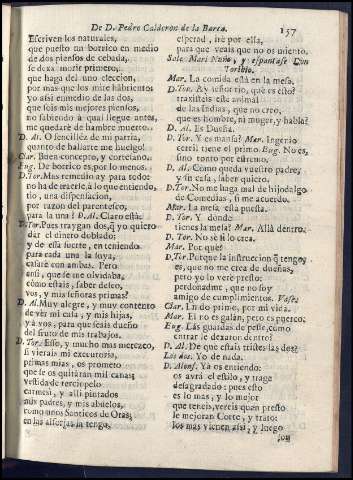 De D. Pedro Calderon de la Barca. 157
Escriven los naturales,
que puesto un borrico en medio
de dos piensos de cebada,
se dexa morir primero,
que haga del uno eleccion,
por mas que los mire hãbrientos
yo assi enmedio de las dos,
que sois mis mejores piensos,
no sabiendo à qual llegue antes,
me quedarè de hambre muerto.
D. Al. O sencillèz de mi patria,
quanto de hallarte me huelgo!
Clar. Buen concepto, y cortesano.
Eug. De borrico es, por lo menos.
D. Tor. Mas remedio ay para todo:
no ha de traerse, à lo que entiendo,
tio, una dispensacion,
por razon del parentesco,
para la una? D. Al. Claro està.
D. Tor. Pues traygan dos, q̃ yo quiero
dar el dinero doblado;
y de essa suerte, en teniendo
para cada una la suya,
casarè con ambas. Pero
ansi, que se me olvidaba,
còmo estais, saber deseo,
vos, y mis señoras primas?
D. Al. Muy alegre, y muy contento
de vèr mi casa, y mis hijas,
y à vos, para que seais dueño
del fruto de mis trabajos.
D. Tor. Esso, y mucho mas merezco,
si vierais mi executoria,
primas mias, os prometo
que se os quitàran mil canas;
vestida de terciopelo
carmesi, y alli pintados
mis padres, y mis abuelos,
como unos Santicos de Oras;
en las alforjas la tengo,
esperad, irè por ella,
para que veais que no os miento.
Sale Mari Nuño, y espantase Don
Toribio.
Mar. La comida està en la mesa.
D. Tor. Ay señor tio, què es esto?
traxisteis este animal
de las Indias, que no creo,
que es hombre, ni muger, y habla?
D. Al. Es Dueña.
D. Tor. Y es mansa? Mar. Ingenio
cerril tiene el primo. Eug. No es,
sino tonto por estremo.
D. Al. Còmo queda vuestro padre,
y su casa, saber quiero.
D. Tor. No me haga mal de hijodalgo
de Comedias, si me acuerdo.
Mar. La mesa està puesta.
D. Tor. Y dònde
tienes la mesa? Mar. Allà dentro.
D. Tor. No sè si lo crea.
Mar. Por què?
D. Tor. Porque la instruccion q̃ tengo
es, que no me crea de dueñas,
pero yo lo verè presto:
perdonadme, que no soy
amigo de cumplimientos. Vase.
Clar. Lindo primo, por mi vida.
Mar. El no es galan, pero es puerco.
Eug. Las guardas de peste, còmo
entrar le dexaron dentro?
D. Al. De què estais tristes las dos?
Las dos. Yo de nada.
D. Alons. Yà os entiendo:
os avrà el estilo, y trage
desagradado; pues esto
es lo mas, y lo mejor
que teneis, vereis quan presto
le mejoran Corte, y trato:
los mas vienen assi, y luego
son